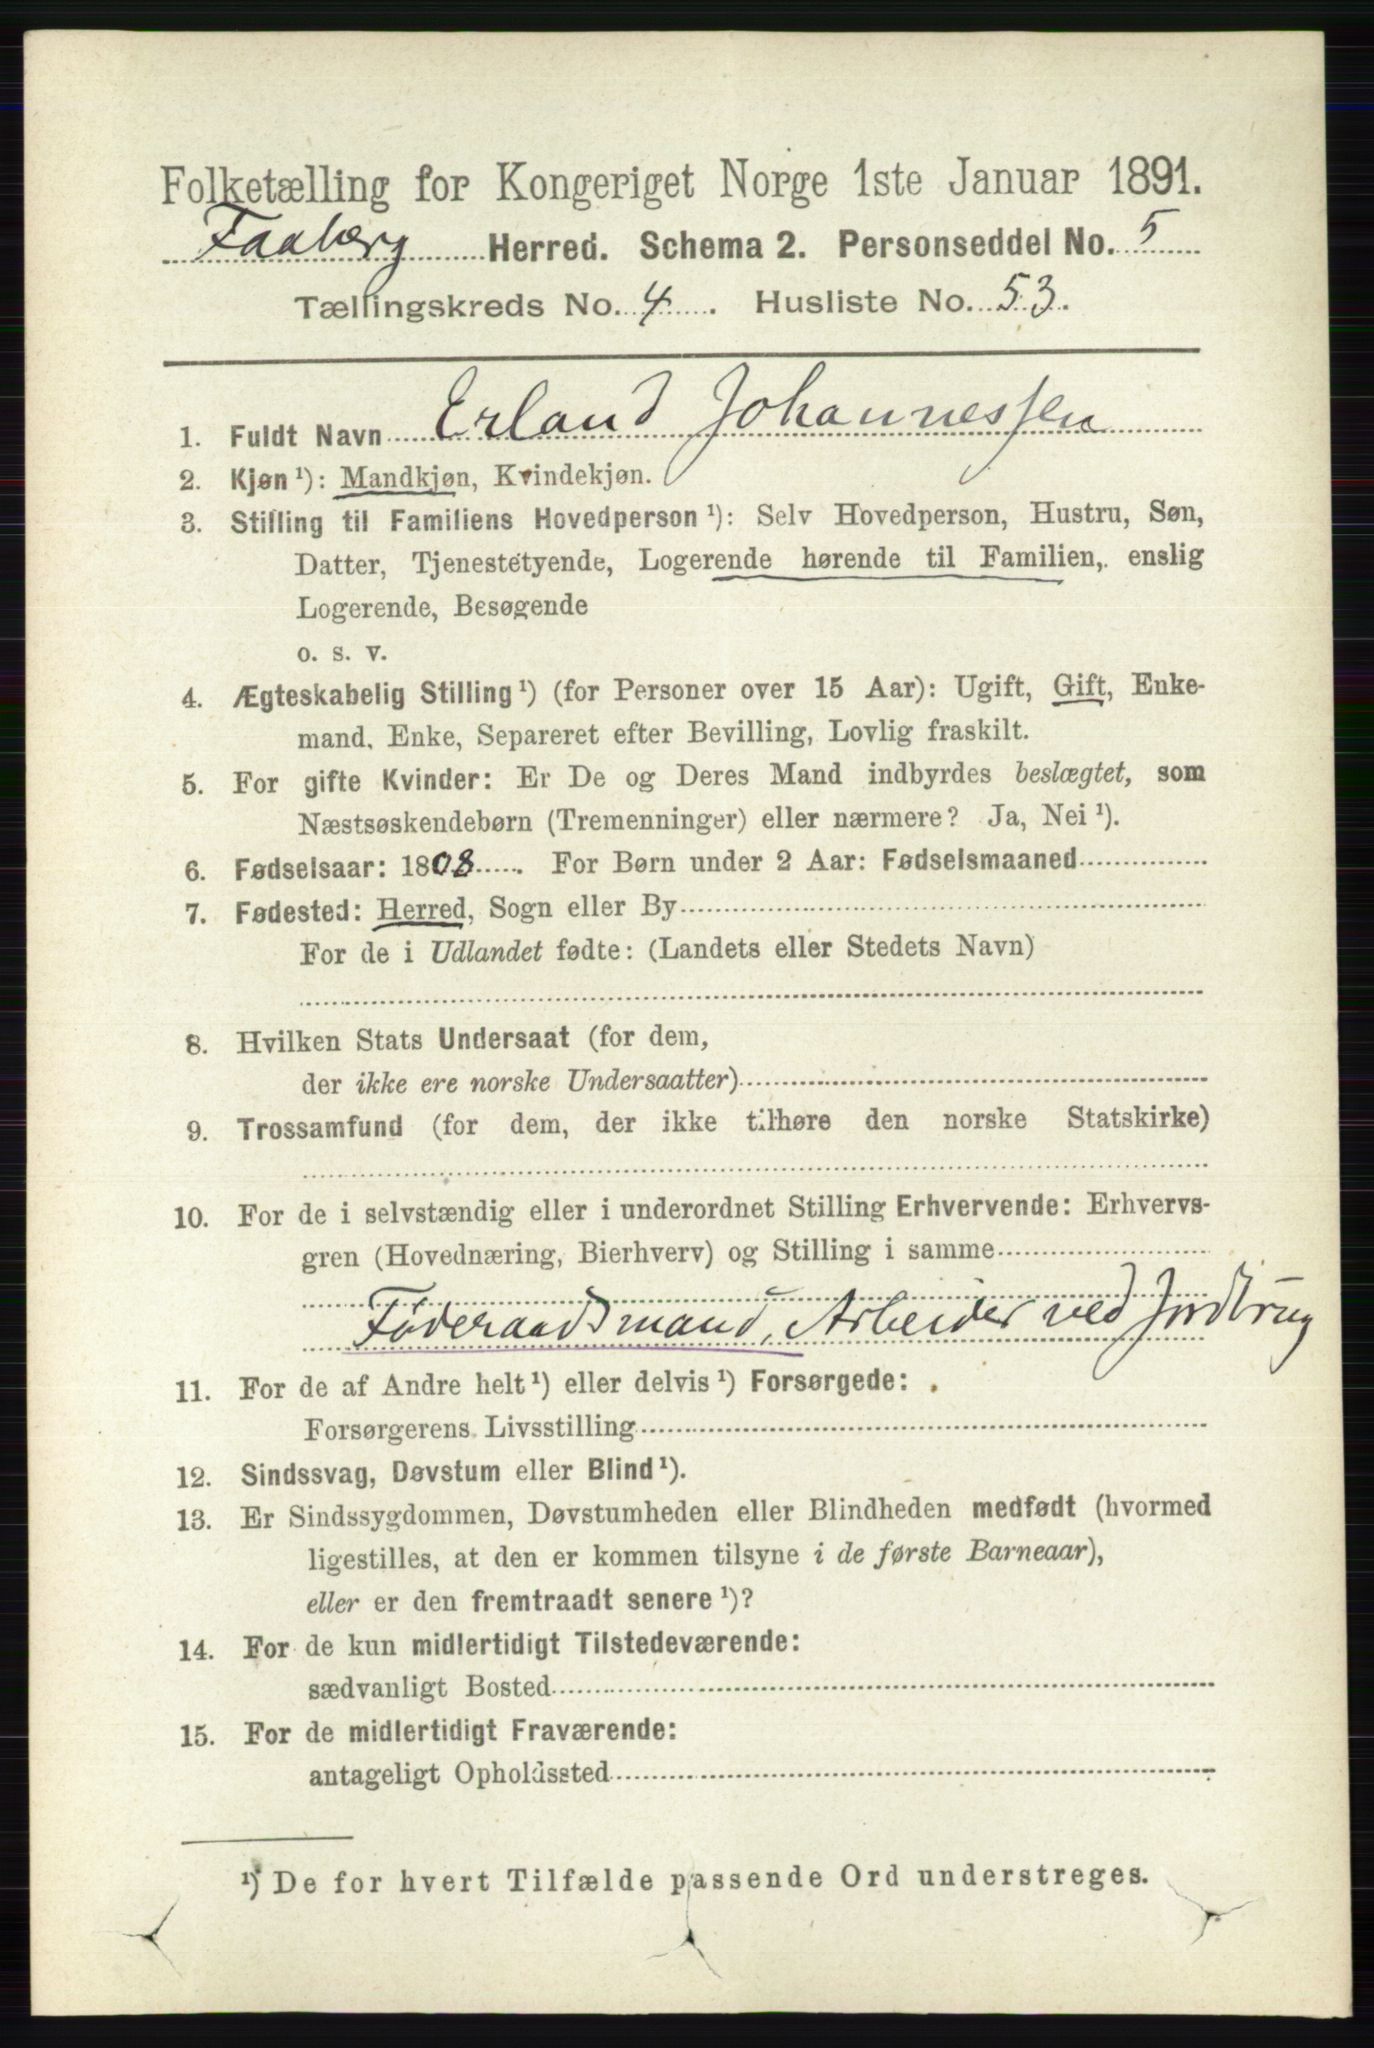 Folketælling for Kongeriget Norge 1ste Januar 1891.
Faaberg Herred. Schema 2. Personseddel No. 5
Tællingskreds No. 4. Husliste No. 53.
1. Fuldt Navn Erland Johannessen
2. Kjøn ¹): Mandkjøn, Kvindekjøn.
3. Stilling til Familiens Hovedperson ¹): Selv Hovedperson, Hustru, Søn,
Datter, Tjenestetyende, Logerende hørende til Familien, enslig
Logerende, Besøgende
o. s. v.
4. Ægteskabelig Stilling ¹) (for Personer over 15 Aar): Ugift, Gift, Enke-
mand, Enke, Separeret efter Bevilling, Lovlig fraskilt.
5. For gifte Kvinder: Er De og Deres Mand indbyrdes beslægtet, som
Næstsøskendebørn (Tremenninger) eller nærmere? Ja, Nei ¹).
6. Fødselsaar: 1808. For Børn under 2 Aar: Fødselsmaaned
7. Fødested: Herred, Sogn eller By
For de i Udlandet fødte: (Landets eller Stedets Navn)
8. Hvilken Stats Undersaat (for dem,
der ikke ere norske Undersaatter)
9. Trossamfund (for dem, der ikke tilhøre den norske Statskirke)
10. For de i selvstændig eller i underordnet Stilling Erhvervende: Erhvervs-
gren (Hovednæring, Bierhverv) og Stilling i samme
Føderaadsmand, Arbeider ved Jordbrug
11. For de af Andre helt ¹) eller delvis ¹) Forsørgede:
Forsørgerens Livsstilling
12. Sindssvag, Døvstum eller Blind ¹).
13. Er Sindssygdommen, Døvstumheden eller Blindheden medfødt (hvormed
ligestilles, at den er kommen tilsyne i de første Barneaar),
eller er den fremtraadt senere ¹)?
14. For de kun midlertidigt Tilstedeværende:
sædvanligt Bosted
15. For de midlertidigt Fraværende:
antageligt Opholdssted
¹) De for hvert Tilfælde passende Ord understreges.